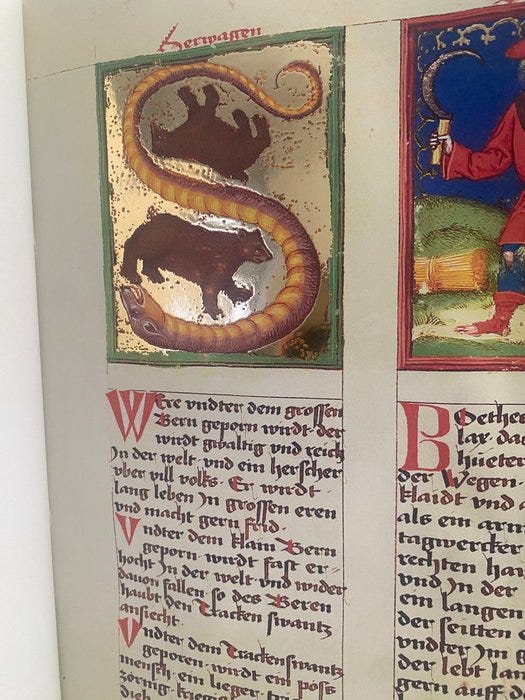 herwagen
Were vndter dem grossen
Bern geporn wirdt der
wirdt gwaltig vnd reich
Jn der welt vnd ein herscher
vber vill volks. Er wirdt
lang leben Jn grossen eren
vnd macht gern frid.
Vndter dem klain Bern
geporn wirdt fast er-
hocht Jn der welt vnd wider
dauon fallen so des Beren
haubt den Tracken swantz
ansiecht.
Vndter dem Trackenswantz
geporen wirdt ein pöss
mensch ein lieger
zörnig
dieb
Boethes
lax. das
hüeter
der Wegen.
klaidt vnd
als ein arm
tagwercker
rechten han
vnd Jn der
ein langen
der seitten
vndter Jm g
der lebt lan
gern auff d